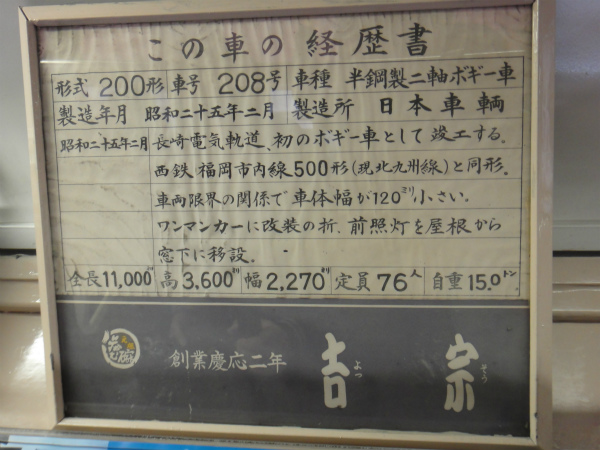 この車の経歴書
形式 200形 車号 208号 車種 半鋼製二軸ボギー車
製造年月 昭和二十五年二月 製造所 日本車輌
昭和二十五年二月 長崎電気軌道、初のボギー車として竣工する。
西鉄福岡市内線500形(現北九州線)と同形。
車両限界の関係で車体幅が120ミリ小さい。
ワンマンカーに改装の折、前照灯を屋根から
窓下に移設。
全長11,000ミリ 高3,600ミリ 幅2,270ミリ 定員76人 自重15.0トン.
創業慶応二年 吉宗
よつ そう